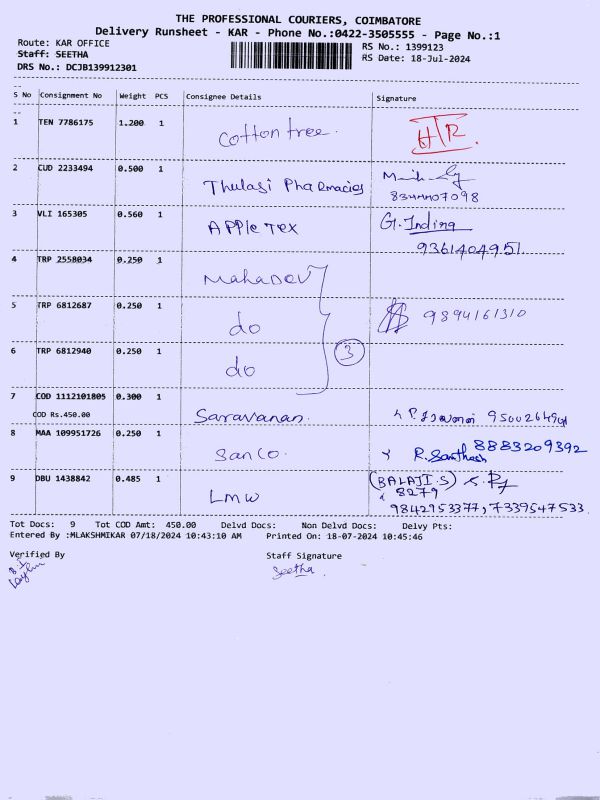 THE PROFESSIONAL COURIERS, COIMBATORE
Delivery Runsheet - KAR - Phone No.:0422-3505555 - Page No.:1
Route: KAR OFFICE RS No.: 1399123
Staff: SEETHA RS Date: 18-Jul-2024
DRS No.: DCJB139912301
S No Consignment No Weight PCS Consignee Details Signature
1 TEN 7786175 1.200 1 Cotton tree.
2 CUD 2233494 0.500 1 Thulasi Pharmacies
3 VLI 165305 0.560 1 APPle Tex G. Indira
9361404951
4 TRP 2558034 0.250 1 MahaDev
5 TRP 6812687 0.250 1 do 9894161310
6 TRP 6812940 0.250 1 do 3
7 COD 1112101805 0.300 1 Saravanan.
COD Rs.450.00
8 MAA 109951726 0.250 1 Sanco. R. Santhosh 8883209392
9 DBU 1438842 0.485 1 LMW (BALAJI.S)
8279
9842953377, 7339547533
Tot Docs: 9 Tot COD Amt: 450.00 Delvd Docs: Non Delvd Docs: Delvy Pts:
Entered By :MLAKSHMIKAR 07/18/2024 10:43:10 AM Printed On: 18-07-2024 10:45:46
Verified By Staff Signature
Seetha